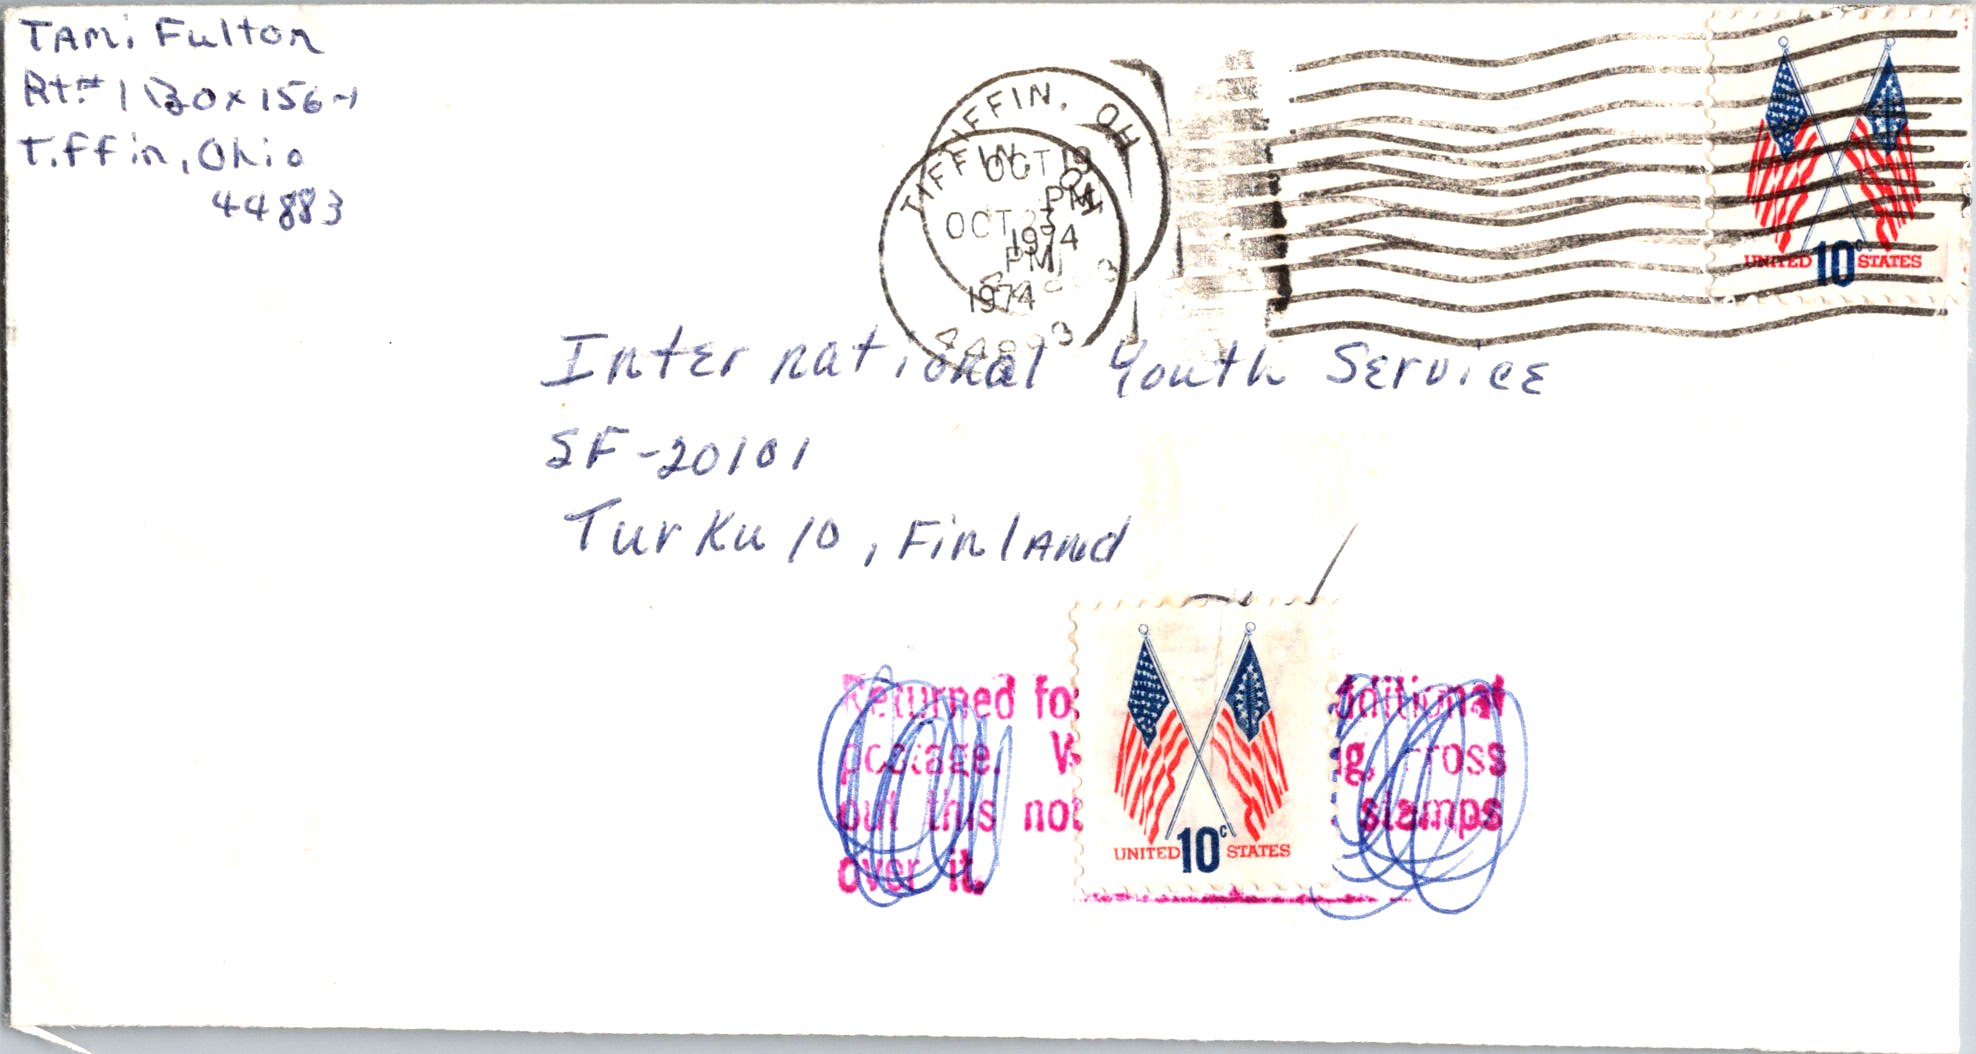 Tami Fulton
Rt.# 1 Box 156-1
Tiffin, Ohio
44883
TIFFIN, OH
OCT 19
PM
1974
TIFFIN OH
OCT 23
PM
1974
44883
UNITED 10c STATES
International Youth Service
SF-20101
Turku 10, Finland
Returned fo dditional
postage. g, cross
out this not stamps
over it.
UNITED 10c STATES